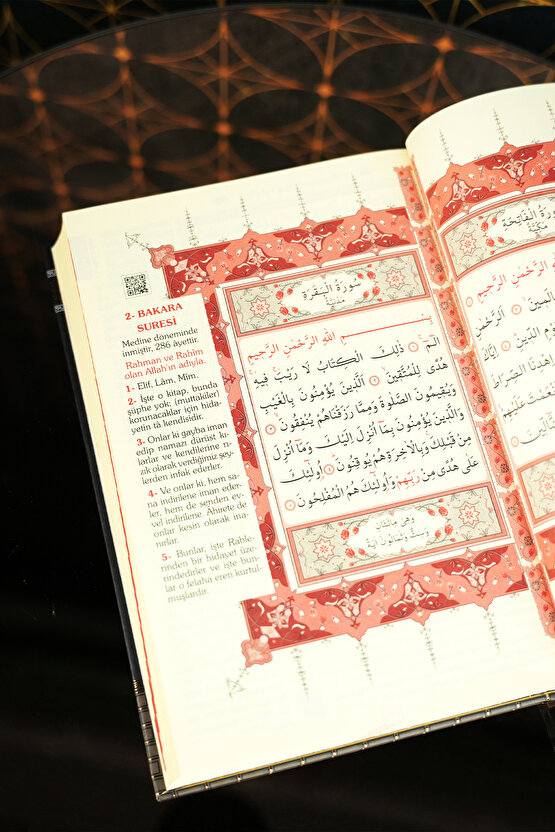 2- BAKARA
SURESİ
Medine döneminde
inmiştir. 286 âyettir.
Rahman ve Rahîm
olan Allah'ın adıyla.
1- Elif, Lâm, Mîm.
2- İşte o kitap, bunda
şüphe yok; (muttakiler)
korunacaklar için hida-
yetin tâ kendisidir.
3- Onlar ki gayba iman
edip namazı dürüst kı-
larlar ve kendilerine rı-
zık olarak verdiğimiz şey-
lerden infak ederler.
4- Ve onlar ki, hem sa-
na indirilene iman eder-
ler, hem de senden ev-
vel indirilene. Âhirete de
onlar kesin olarak ina-
nırlar.
5- Bunlar, işte Rable-
rinden bir hidayet üze-
rindedirler ve işte bun-
lar o felaha eren kurtul-
muşlardır.
سُورَةُ الْبَقَرَةِ
مَدَنِيَّةٌ
بِسْمِ اللّٰهِ الرَّحْمٰنِ الرَّحِيمِ
الٓمٓ ۞ ذٰلِكَ الْكِتَابُ لَا رَيْبَ فِيهِ
هُدًى لِلْمُتَّقِينَ ۞ اَلَّذِينَ يُؤْمِنُونَ بِالْغَيْبِ
وَيُقِيمُونَ الصَّلٰوةَ وَمِمَّا رَزَقْنَاهُمْ يُنْفِقُونَ ۞
وَالَّذِينَ يُؤْمِنُونَ بِمَٓا اُنْزِلَ اِلَيْكَ وَمَٓا اُنْزِلَ
مِنْ قَبْلِكَ وَبِالْاٰخِرَةِ هُمْ يُوقِنُونَ ۞ اُو۬لٰٓئِكَ
عَلٰى هُدًى مِنْ رَبِّهِمْ وَاُو۬لٰٓئِكَ هُمُ الْمُفْلِحُونَ ۞
وَهِيَ مِائَتَانِ
وَسِتٌّ وَثَمَانُونَ اٰيَةً
سُورَةُ الْفَاتِحَةِ
مَكِّيَّةٌ
اللّٰهِ الرَّحْمٰنِ الرَّحِيمِ